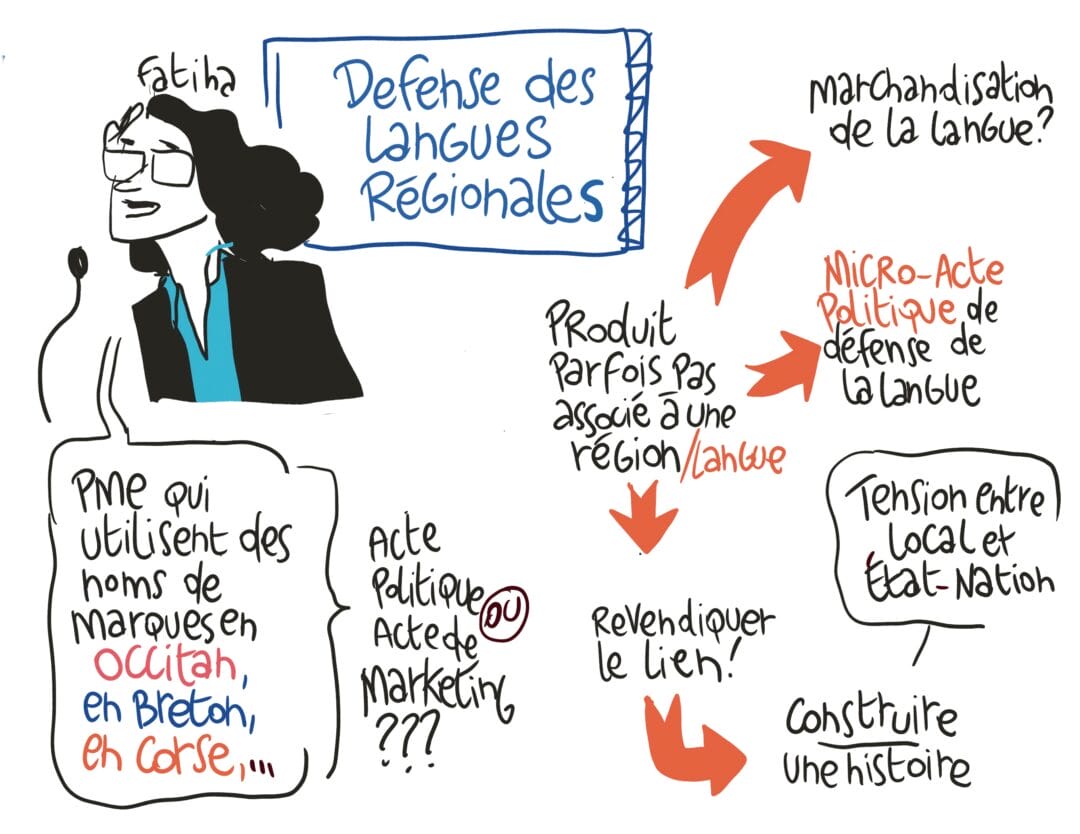 Fatiha
Defense des
Langues
Régionales
PME qui
utilisent des
noms de
marques en
Occitan,
en Breton,
en Corse,...
Acte
Politique OU
Acte de
Marketing
???
Produit
Parfois Pas
associé à une
région/Langue
Marchandisation
de la Langue?
Micro-Acte
Politique de
défense de
La Langue
Revendiquer
le lien!
Tension entre
Local et
État-Nation
Construire
une histoire